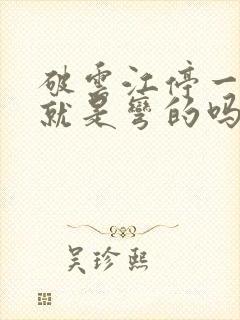 破雲江停一
就是彎的吗
吴珍熙